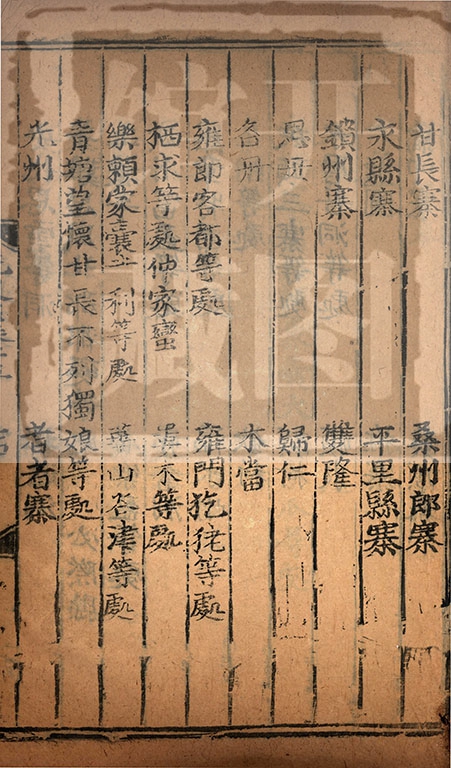 甘長寨 桑州郎寨
永縣寨 平里縣寨
鎖州寨 雙隆
思 歸仁
各州 木當
雍郎客都等處 雍門犵狫等處
栖求等處仲家蠻 等處
樂賴蒙囊 利等處 華山谷津等處
青塘望懷甘長不列獨娘等處
光州 者者寨